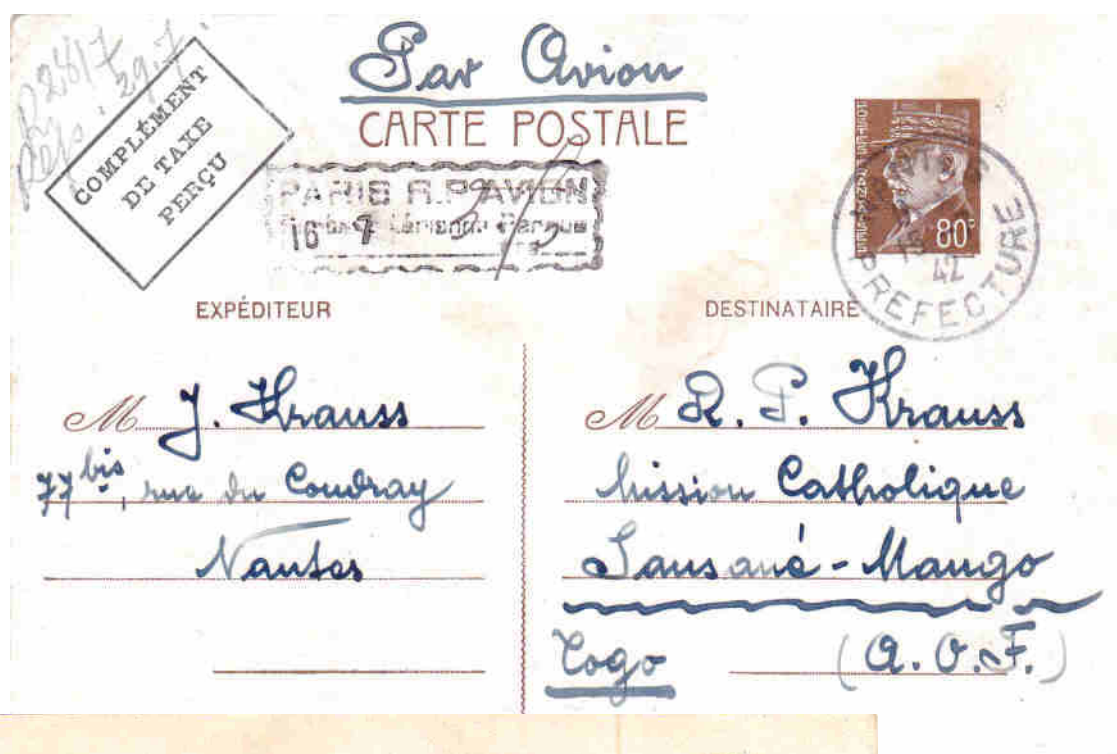 R 28/7
rép. 29.7.
COMPLÉMENT
DE TAXE
PERÇU
Par Avion
CARTE POSTALE
PARIS R.P. AVION
16 7
80c
NANTES
42
PREFECTURE
EXPÉDITEUR
M J. Krauss
77 bis, rue du Coudray
Nantes
DESTINATAIRE
M R. P. Krauss
Mission Catholique
Sansané-Mango
Togo (A.O.F.)